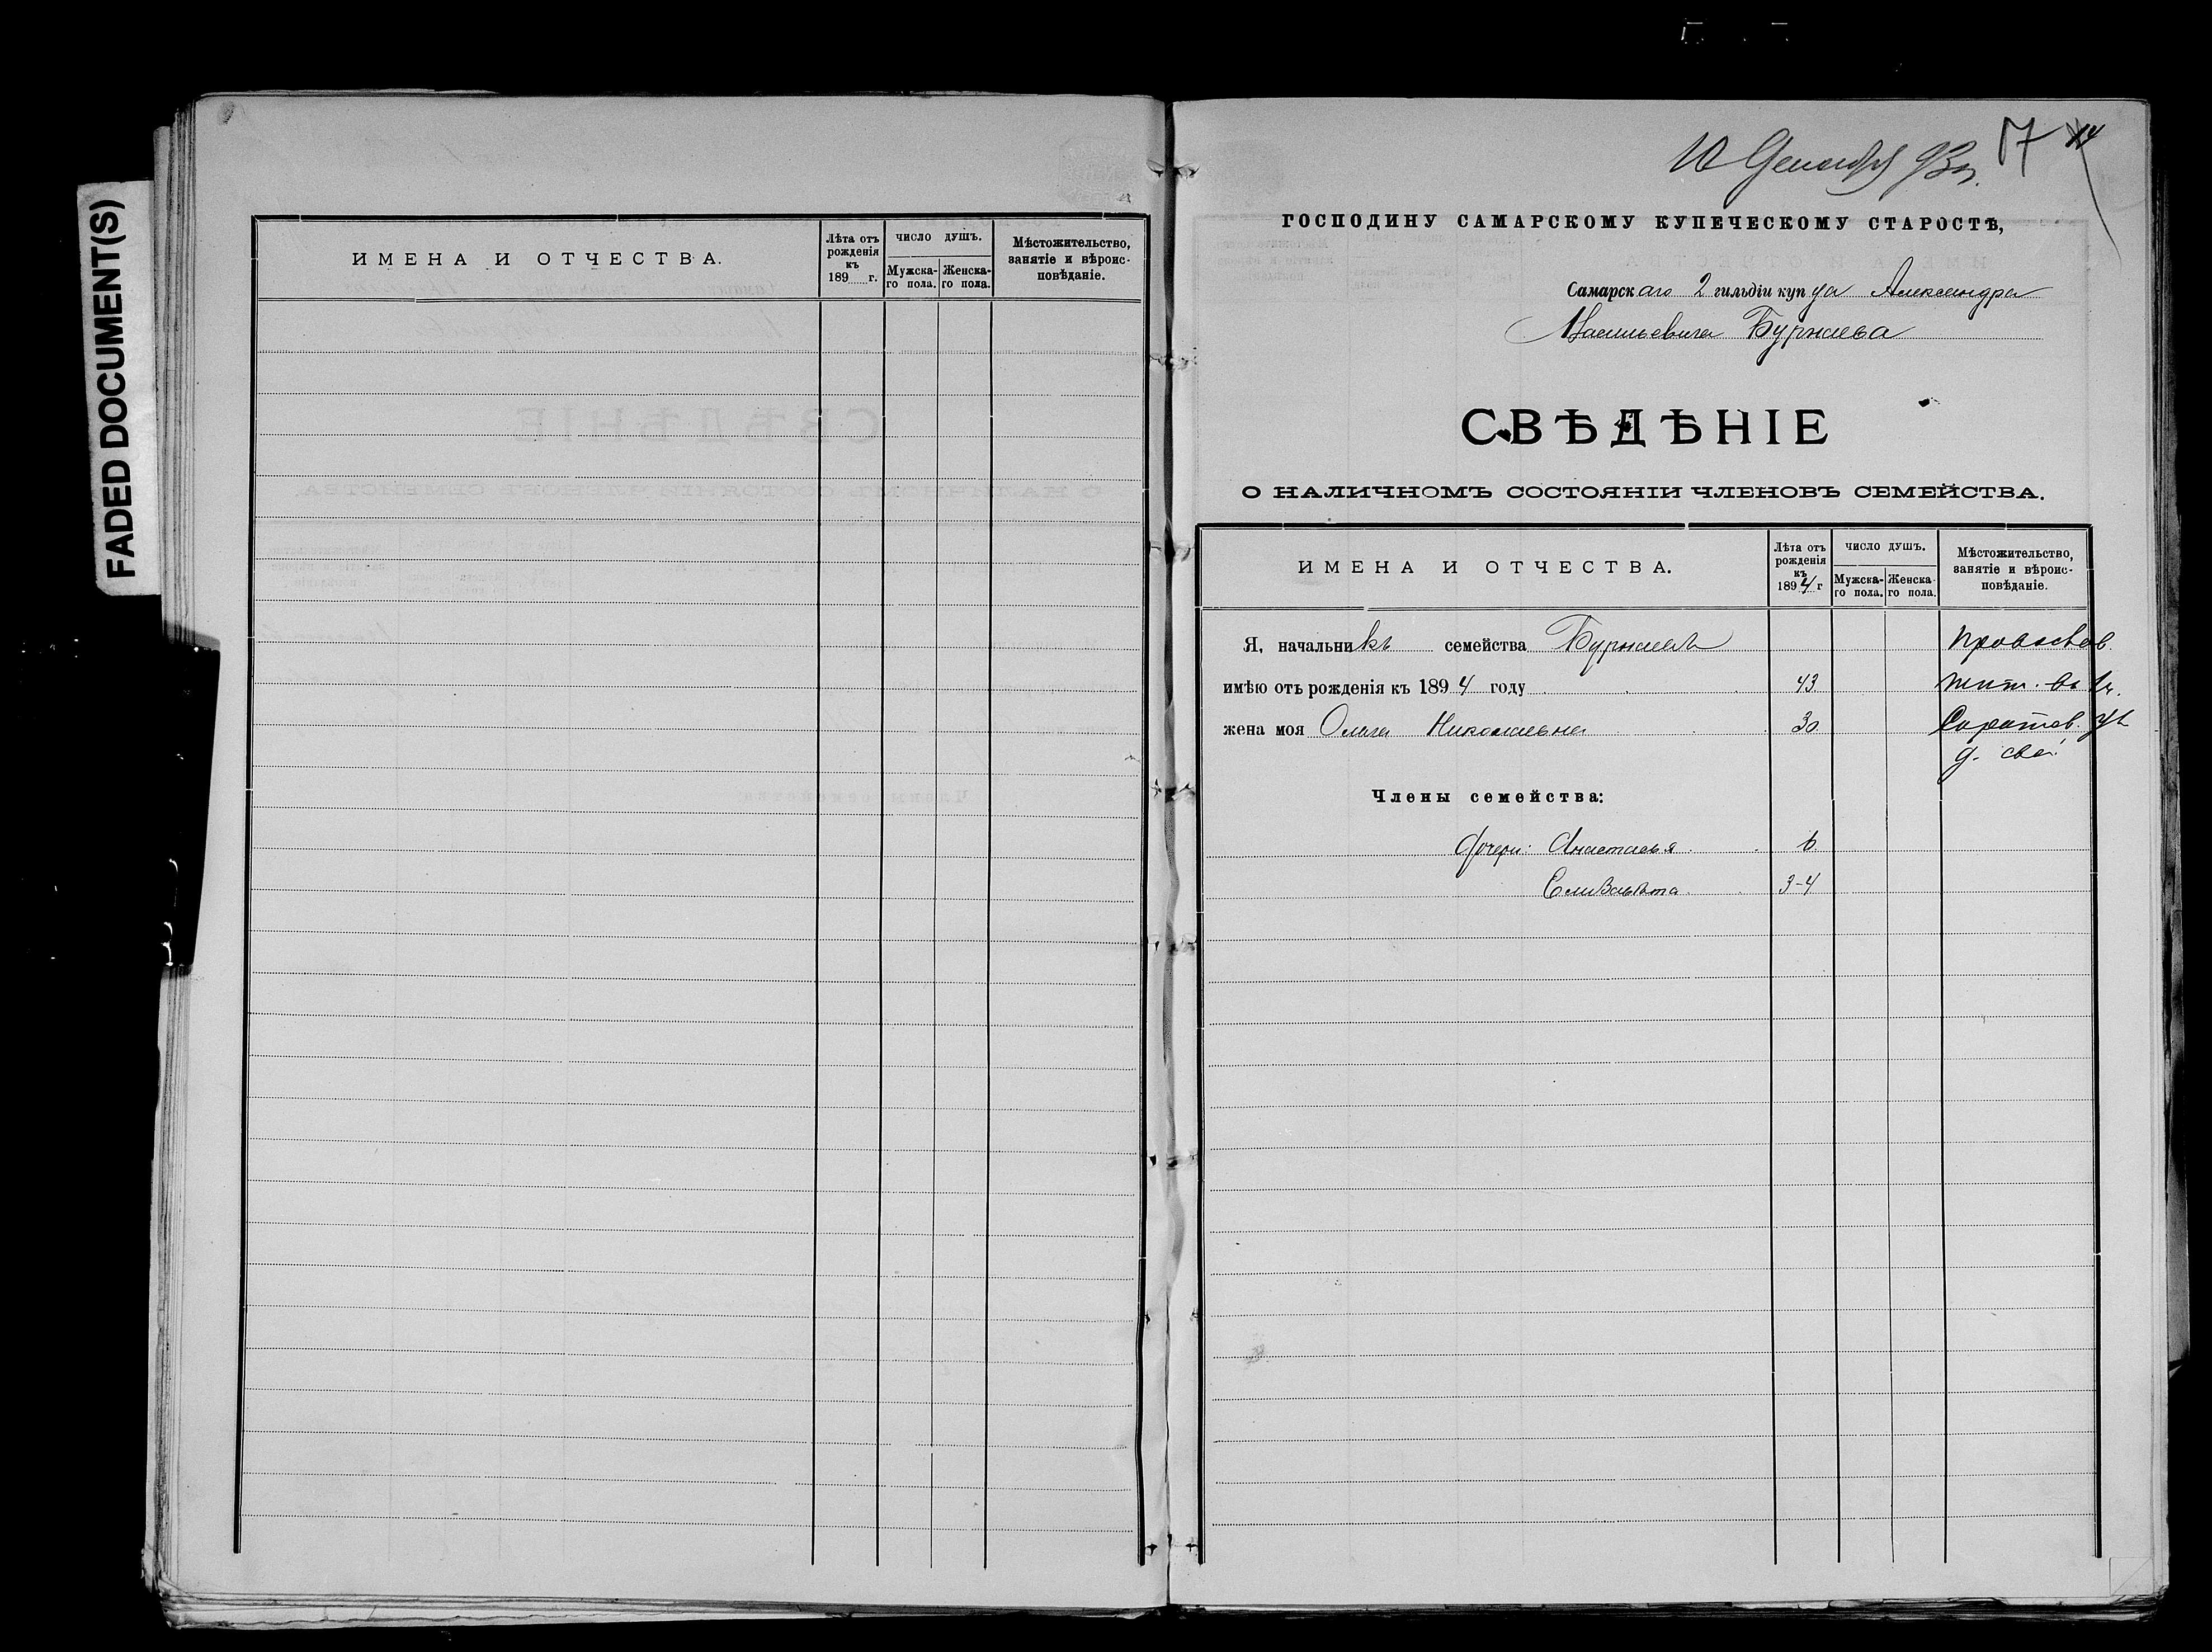 FADED DOCUMENT(S)
ИМЕНА И ОТЧЕСТВА.
Лѣта отъ рожденія къ 189 г.
ЧИСЛО ДУШЪ.
Мужска-го пола.
Женска-го пола.
Мѣстожительство, занятіе и вѣроис-повѣданіе.
10 Декабря 93 г.
17
14
ГОСПОДИНУ САМАРСКОМУ КУПЕЧЕСКОМУ СТАРОСТѢ,
Самарскаго 2 гильдіи купца Александра
Васильевича Бурнаева
СВѢДѢНІЕ
О НАЛИЧНОМЪ СОСТОЯНІИ ЧЛЕНОВЪ СЕМЕЙСТВА.
ИМЕНА И ОТЧЕСТВА.
Лѣта отъ рожденія къ 1894 г
ЧИСЛО ДУШЪ.
Мужска-го пола.
Женска-го пола.
Мѣстожительство, занятіе и вѣроис-повѣданіе.
Я, начальникъ семейства Бурнаевъ православ.
имѣю отъ рожденія къ 1894 году 43 жит.
жена моя Ольга Николаевна 30
д. свой
Члены семейства:
дочери: Анастасья 6
Елизавета 3-4